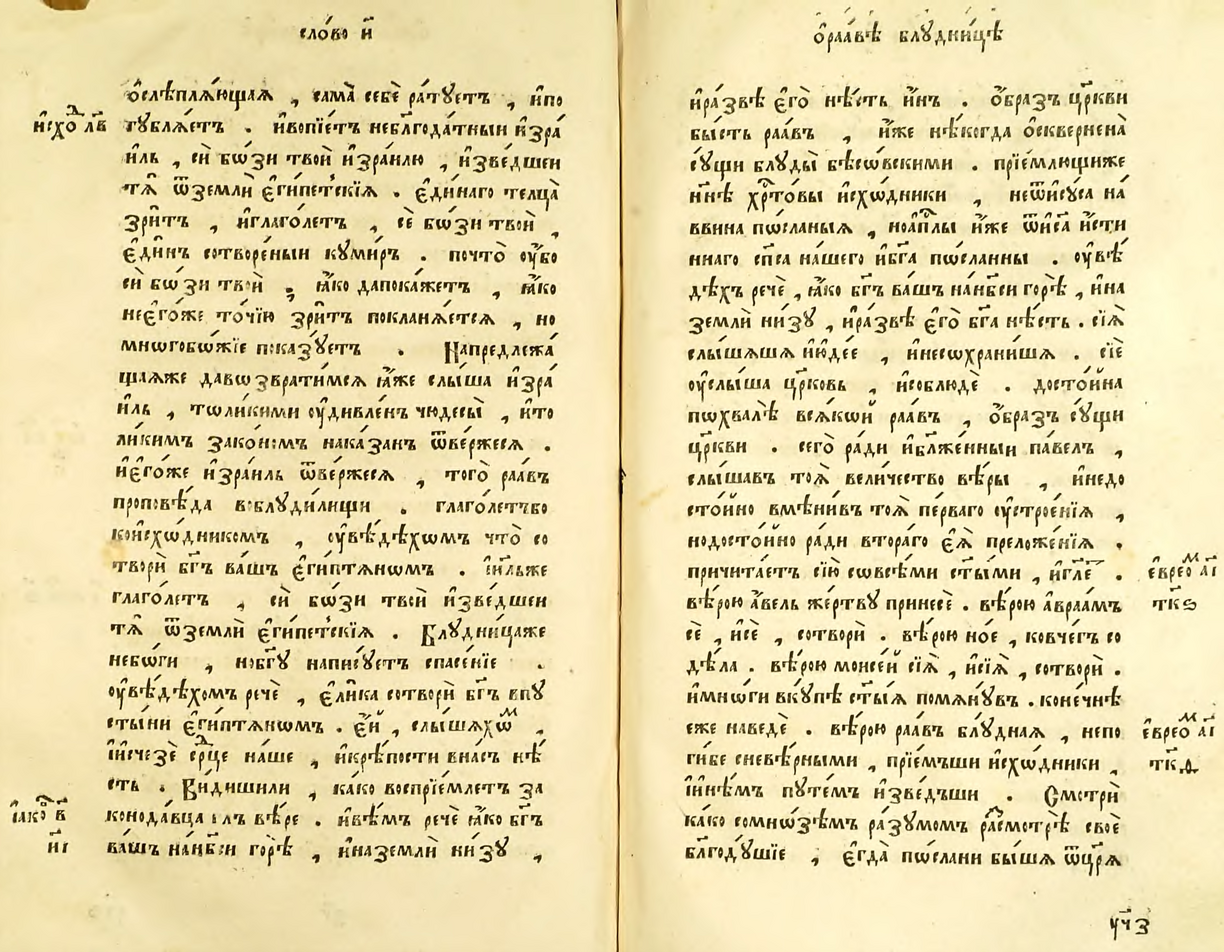 сло́во и҃
ѻ҆слѣплѧ́ющаѧ , сама̀ себѐ ра́тꙋетъ , и҆по
гꙋблѧ́етъ . и҆вопїе́тъ неблг҃ода́тныи и҆зра́
исхо́д л҃в
иль , сѝ бѡ́зи твоѝ и҆зра́илю , и҆зве́дшеи
тѧ̀ ѿземлѝ є҆ги́петскїѧ . є҆ди́наго телца̀
зри́тъ , и҆глаго́летъ , сѐ бѡ́зи твоѝ ,
є҆ди́нъ сотворе́ныи кꙋми́ръ . почто̀ ᲂу҆́бо
сѝ бѡ́зи твоѝ , ꙗ҆́ко дапока́жетъ , ꙗ҆́ко
неє҆го́же то́чїю зри́тъ покланѧ́етсѧ , но
мнѡгобѡ́жїе пока́зꙋетъ . Напредлежа́
щаѧже давѡзврати́мсѧ ꙗ҆́же слы́ша и҆зра́
иль , толи́кими ᲂу҆дивле́нъ чюдесы̀ , и҆то
ли́кимъ зако́номъ нака́занъ ѿве́ржесѧ .
и҆єго́же и҆зра́иль ѿве́ржесѧ , того̀ раа́въ
проповѣ́да вблꙋди́лищи . глаго́летъбо
коисхѡ́дникомъ , ᲂу҆вѣ́дѣхѡмъ что̀ со
творѝ бг҃ъ ва́шъ є҆ги́птѧнѡмъ . і҆и҃льже
глаго́летъ , сѝ бѡ́зи твоѝ и҆зве́дшеи
тѧ̀ ѿземлѝ є҆ги́петскїѧ . Блꙋдни́цаже
небѡ́ги , нобг҃ꙋ напи́сꙋетъ спасе́нїе .
ᲂу҆вѣ́дѣхомъ речѐ , є҆ли́ка сотворѝ бг҃ъ впꙋ
сты́ни є҆ги́птѧнѡмъ . є҆́й , слы́шѧхѡм ,
и҆исчезѐ срдце на́ше , и҆крѣ́пости вна́съ нѣ́
сть . Ви́дишили , ка́ко воспрїе́млетъ за
конода́вца гл҃ъ вѣ́ре . и҆вѣ́мъ речѐ ꙗ҆́ко бг҃ъ
ва́шъ нан҃бси горѣ̀ , и҆наземлѝ ни́зꙋ ,
і҆ако в҃
и҃і
ѻ҆раа́вѣ блꙋдни́цѣ
и҆ра́звѣ є҆го̀ нѣ́сть и҆́нъ . ѻ҆́бразъ цр҃кви
бы́сть раа́въ , и҆́же нѣ́когда ѻ҆скверне́на
сꙋ́щи блꙋды̀ бѣсѡ́вскими . прїе́млющиже
ны́нѣ хр҃то́вы и҆схѡ́дники , неѿисꙋ́са на́
ввина пѡ́сланыѧ , ноап҃лы и҆́же ѿи҃са и҆́сти
ннаго сп҃са на́шего и҆бг҃а пѡ́сланны . ᲂу҆вѣ́
дѣхъ речѐ , ꙗ҆́ко бг҃ъ ва́шъ нан҃бси горѣ̀ , и҆на
землѝ ни́зꙋ , и҆ра́звѣ є҆го̀ бг҃а нѣ́сть . сїѧ̀
слы́шѧшѧ и҆юде́е , и҆несохрани́шѧ . сїѐ
ᲂу҆слы́ша цр҃ковь , и҆соблюдѐ . досто́йна
пѡхвалѣ̀ всѧ́кѡй раа́въ , ѻ҆́бразъ сꙋ́щи
цр҃кви . сего̀ ра́ди и҆блж҃е́нныи па́велъ ,
слы́шавъ тоѧ̀ вели́чество вѣ́ры , и҆недо
сто́йно вмѣ́нивъ тоѧ̀ пе́рваго ᲂу҆строе́нїѧ ,
нодосто́йно ра́ди втора́го є҆ѧ̀ преложе́нїѧ .
причита́етъ сїю̀ совсѣ́ми ст҃ы́ми , и҆гл҃е .
є҆врео́м а҃і
вѣ́рою а҆́вель же́ртвꙋ принесѐ . вѣ́рою а҆враа́мъ
тк҃ѕ
сѐ , и҆сѐ , сотворѝ . вѣ́рою но́е , ковче́гъ со
дѣ́ла . вѣ́рою моисе́й сїѧ̀ , и҆сїѧ̀ , сотворѝ .
и҆мно́ги вкꙋ́пѣ ст҃ы́ѧ помѧнꙋ́въ . коне́чнѣ
еже наведѐ . вѣ́рою раа́въ блꙋдна́ѧ , непо
є҆врео́м а҃і
ги́бе сневѣ́рными , прїе́мъши и҆схѡ́дники ,
тк҃д
і҆инѣ́мъ пꙋте́мъ и҆зве́дъши . Смотрѝ
ка́ко сомно́зѣмъ ра́зꙋмомъ расмотрѣ̀ своѐ
блг҃одꙋ́шїе , є҆гда̀ пѡ́слани бы́шѧ ѿцр҃ѧ
уч҃з